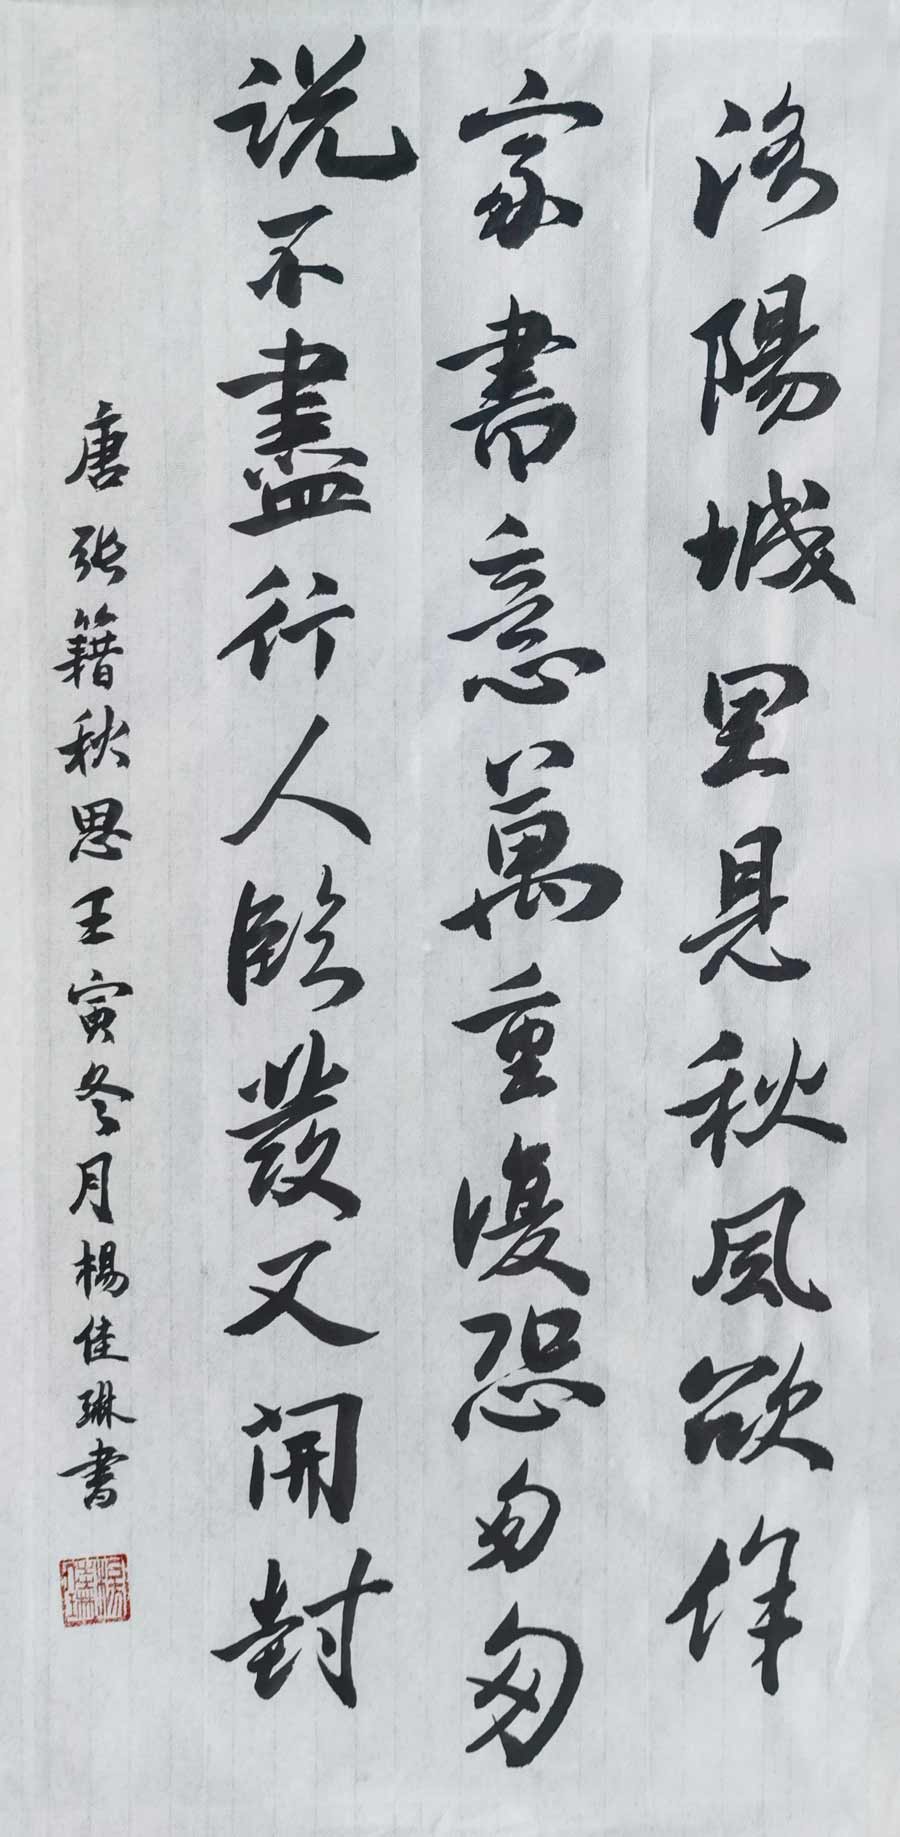 洛陽城里見秋風欲作
家書意萬重復恐匆匆
説不盡行人臨發又開封
唐張籍秋思壬寅冬月楊佳琳書
楊佳琳